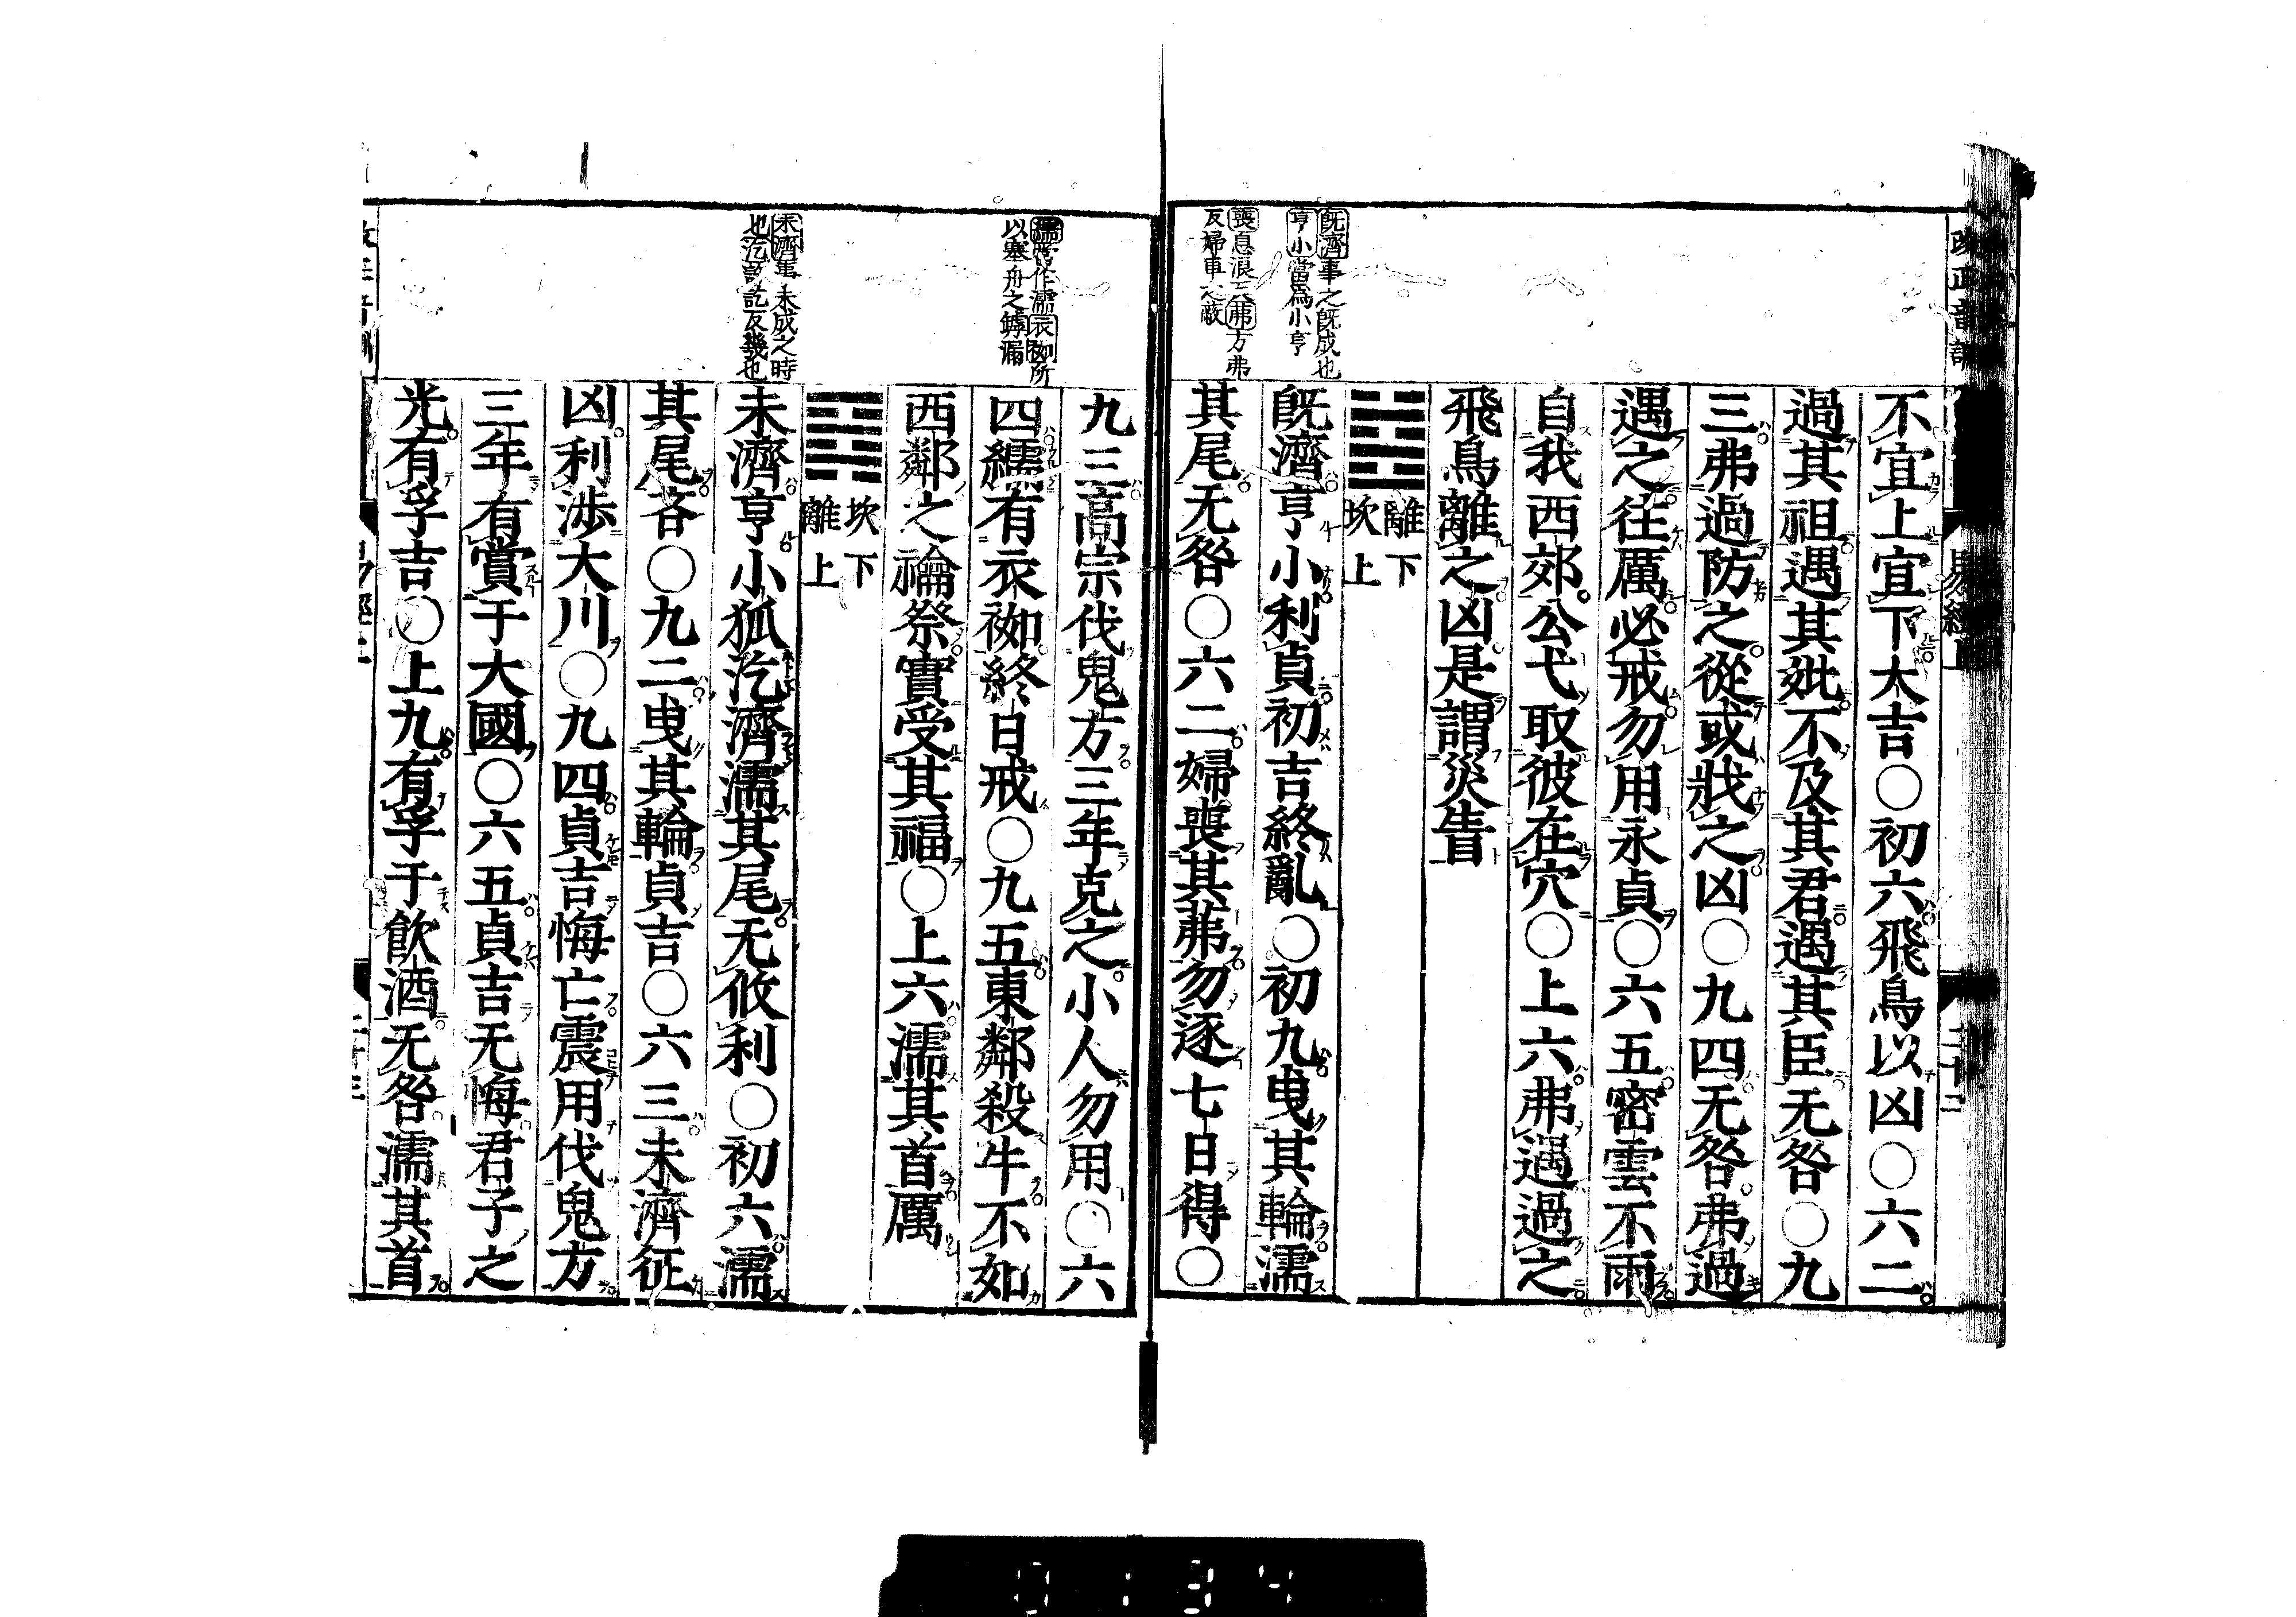 不宜上宜下大吉○初六飛鳥以凶○六二
過其祖遇其妣不及其君遇其臣无咎○九
三弗過防之從或戕之凶○九四无咎弗過
遇之往厲必戒勿用永貞○六五密雲不雨
自我西郊公弋取彼在穴○上六弗遇過之
飛鳥離之凶是謂災眚
離下
坎上
既濟事之既成也
亨小當為小亨
既濟亨小利貞初吉終亂○初九曳其輪濡
喪息浪反茀方弗
反婦車之蔽
其尾无咎○六二婦喪其茀勿逐七日得○
九三高宗伐鬼方三年克之小人勿用○六
繻當作濡衣袽所
以塞舟之罅漏
四繻有衣袽終日戒○九五東鄰殺牛不如
西鄰之禴祭實受其福○上六濡其首厲
坎下
離上
未濟事未成之時
也汔許訖反幾也
未濟亨小狐汔濟濡其尾无攸利○初六濡
其尾吝○九二曳其輪貞吉○六三未濟征
凶利涉大川○九四貞吉悔亡震用伐鬼方
三年有賞于大國○六五貞吉无悔君子之
光有孚吉○上九有孚于飲酒无咎濡其首